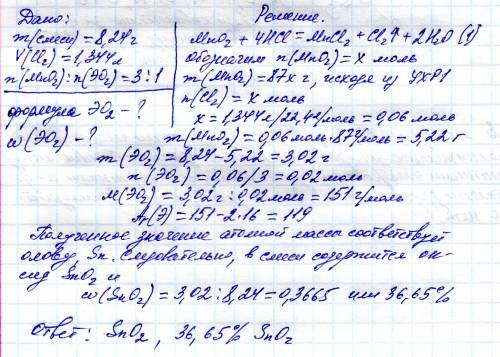 Дано:
m(смеси) = 8,24 г
V(Cl₂) = 1,344 л
n(MnO₂) : n(ЭО₂) = 3 : 1
формула ЭО₂ – ?
ω(ЭО₂) – ?
Решение.
MnO₂ + 4HCl = MnCl₂ + Cl₂↑ + 2H₂O (1)
обозначим n(MnO₂) = x моль
m(MnO₂) = 87x г, исходя из УХР1
n(Cl₂) = x моль
x = 1,344 л / 22,4 л/моль = 0,06 моль
m(MnO₂) = 0,06 моль · 87 г/моль = 5,22 г
m(ЭО₂) = 8,24 – 5,22 = 3,02 г
n(ЭО₂) = 0,06/3 = 0,02 моль
M(ЭО₂) = 3,02 г : 0,02 моль = 151 г/моль
Ar(Э) = 151 – 2·16 = 119
Полученное значение атомной массы соответствует
олову, Sn. Следовательно, в смеси содержится ок-
сид SnO₂ и
ω(SnO₂) = 3,02 : 8,24 = 0,3665 или 36,65%
Ответ: SnO₂, 36,65% SnO₂